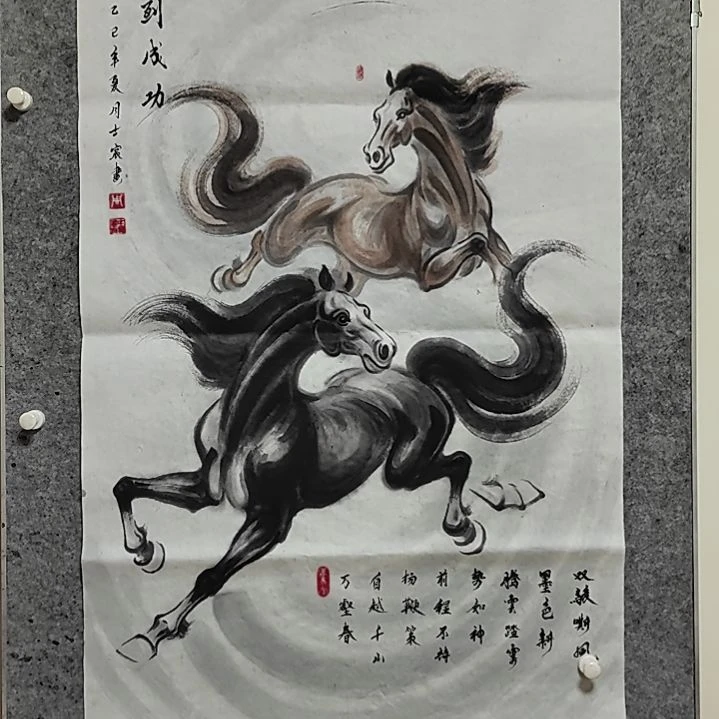 到成功
乙巳年夏月士宸畫
双骏嘶风
墨色新
腾雲踏雾
势如神
前程不待
扬鞭策
自越千山
万壑春